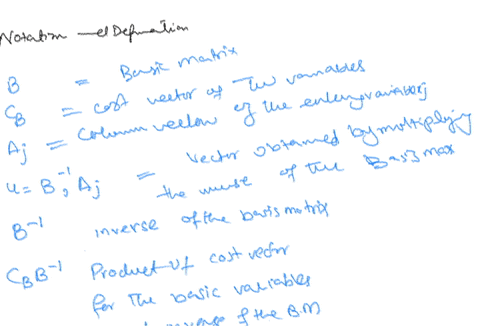 Notation and Defination
B = Basic matrix
C_B = cost vector of the variables
Aj = Column vector of the entering variable j
u = B^-1, Aj = Vector obtained by multiplying
the inverse of the Basis max
B^-1 inverse of the basis matrix
C_B B^-1 Product of cost vector
for the basic variables
inverse of the B.M